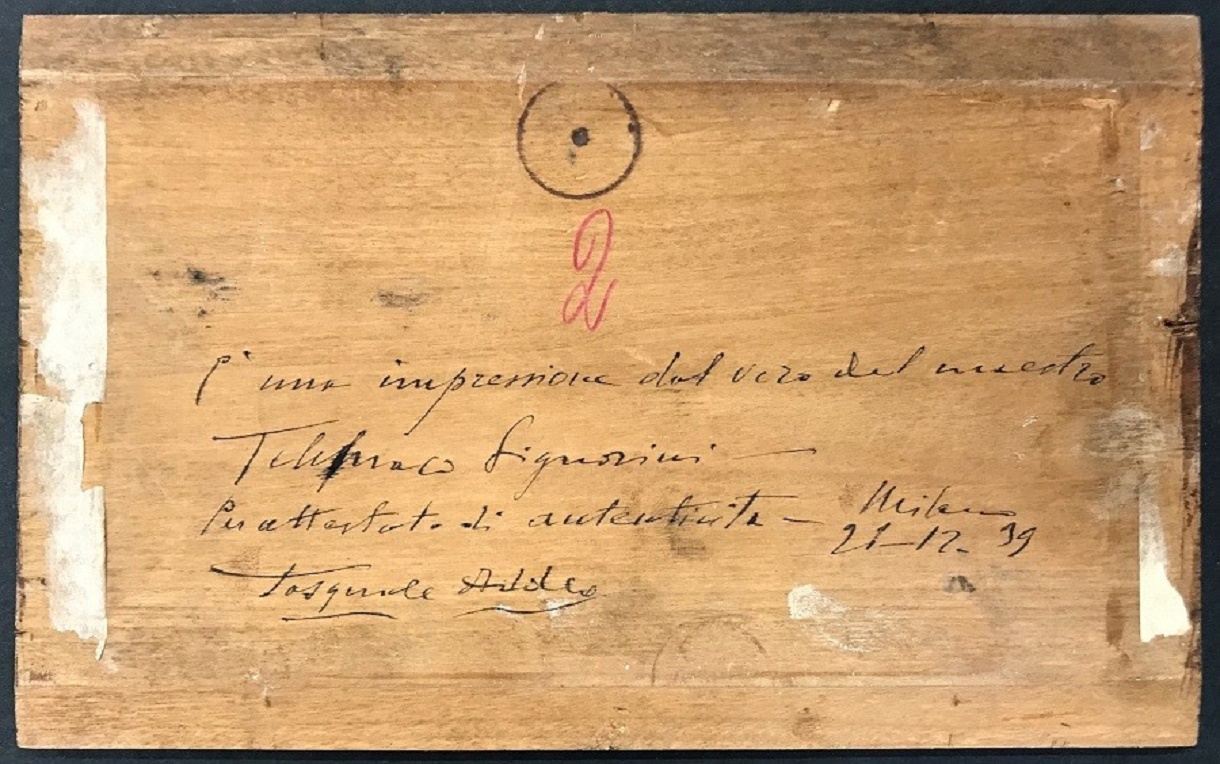 2
È una impressione dal vero del maestro
Telemaco Signorini —
Per attestato di autenticità — Milano
21-12-39
Pasquale Addeo